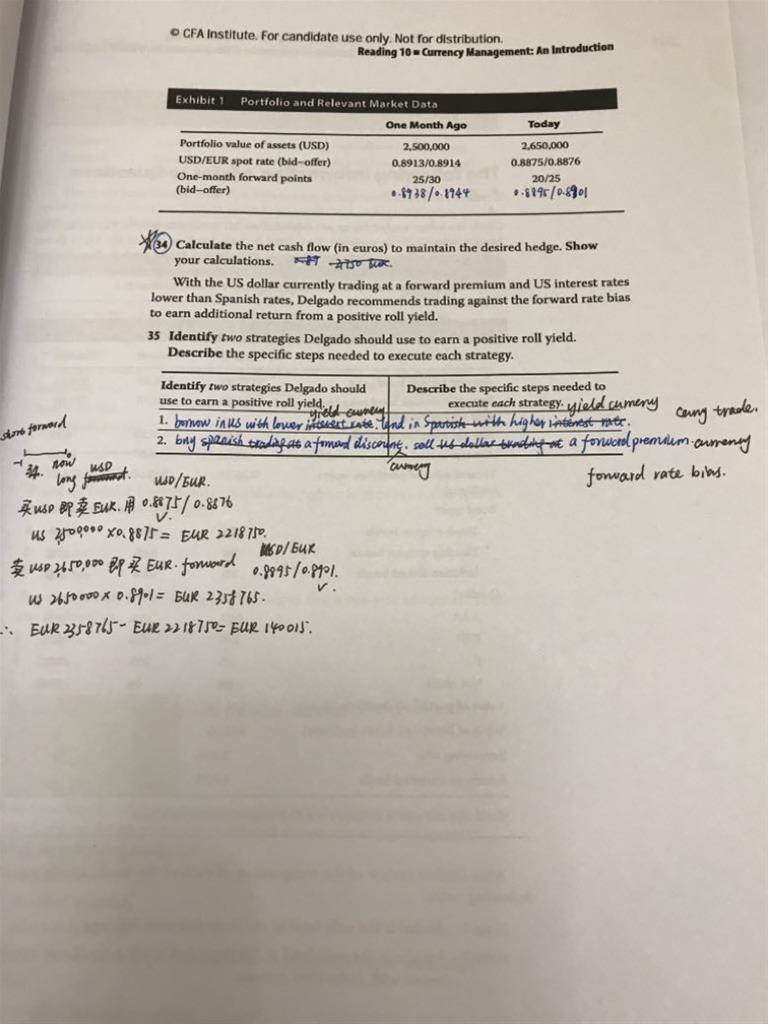 © CFA Institute. For candidate use only. Not for distribution.
Reading 10 ■ Currency Management: An Introduction
Exhibit 1 Portfolio and Relevant Market Data
One Month Ago Today
Portfolio value of assets (USD) 2,500,000 2,650,000
USD/EUR spot rate (bid–offer) 0.8913/0.8914 0.8875/0.8876
One-month forward points 25/30 20/25
(bid–offer) 0.8938/0.8944 0.8895/0.8901
34 Calculate the net cash flow (in euros) to maintain the desired hedge. Show
your calculations.
With the US dollar currently trading at a forward premium and US interest rates
lower than Spanish rates, Delgado recommends trading against the forward rate bias
to earn additional return from a positive roll yield.
35 Identify two strategies Delgado should use to earn a positive roll yield.
Describe the specific steps needed to execute each strategy.
Identify two strategies Delgado should Describe the specific steps needed to
use to earn a positive roll yield. execute each strategy.
yield currency yield currency
1. borrow in US with lower interest rate. lend in Spanish with higher interest rate. carry trade.
2. buy spanish trading at a forward discount. sell US dollar trading at a forward premium currency
currency
forward rate bias.
short forward
now
long USD forward.
USD/EUR.
买USD 即卖 EUR. 用 0.8875/0.8876
US 2500000 × 0.8875 = EUR 2218750.
USD/EUR
卖 USD 2,650,000 即买 EUR. forward 0.8895/0.8901.
US 2650000 × 0.8901 = EUR 2358765.
∴ EUR 2358765 - EUR 2218750 = EUR 140015.